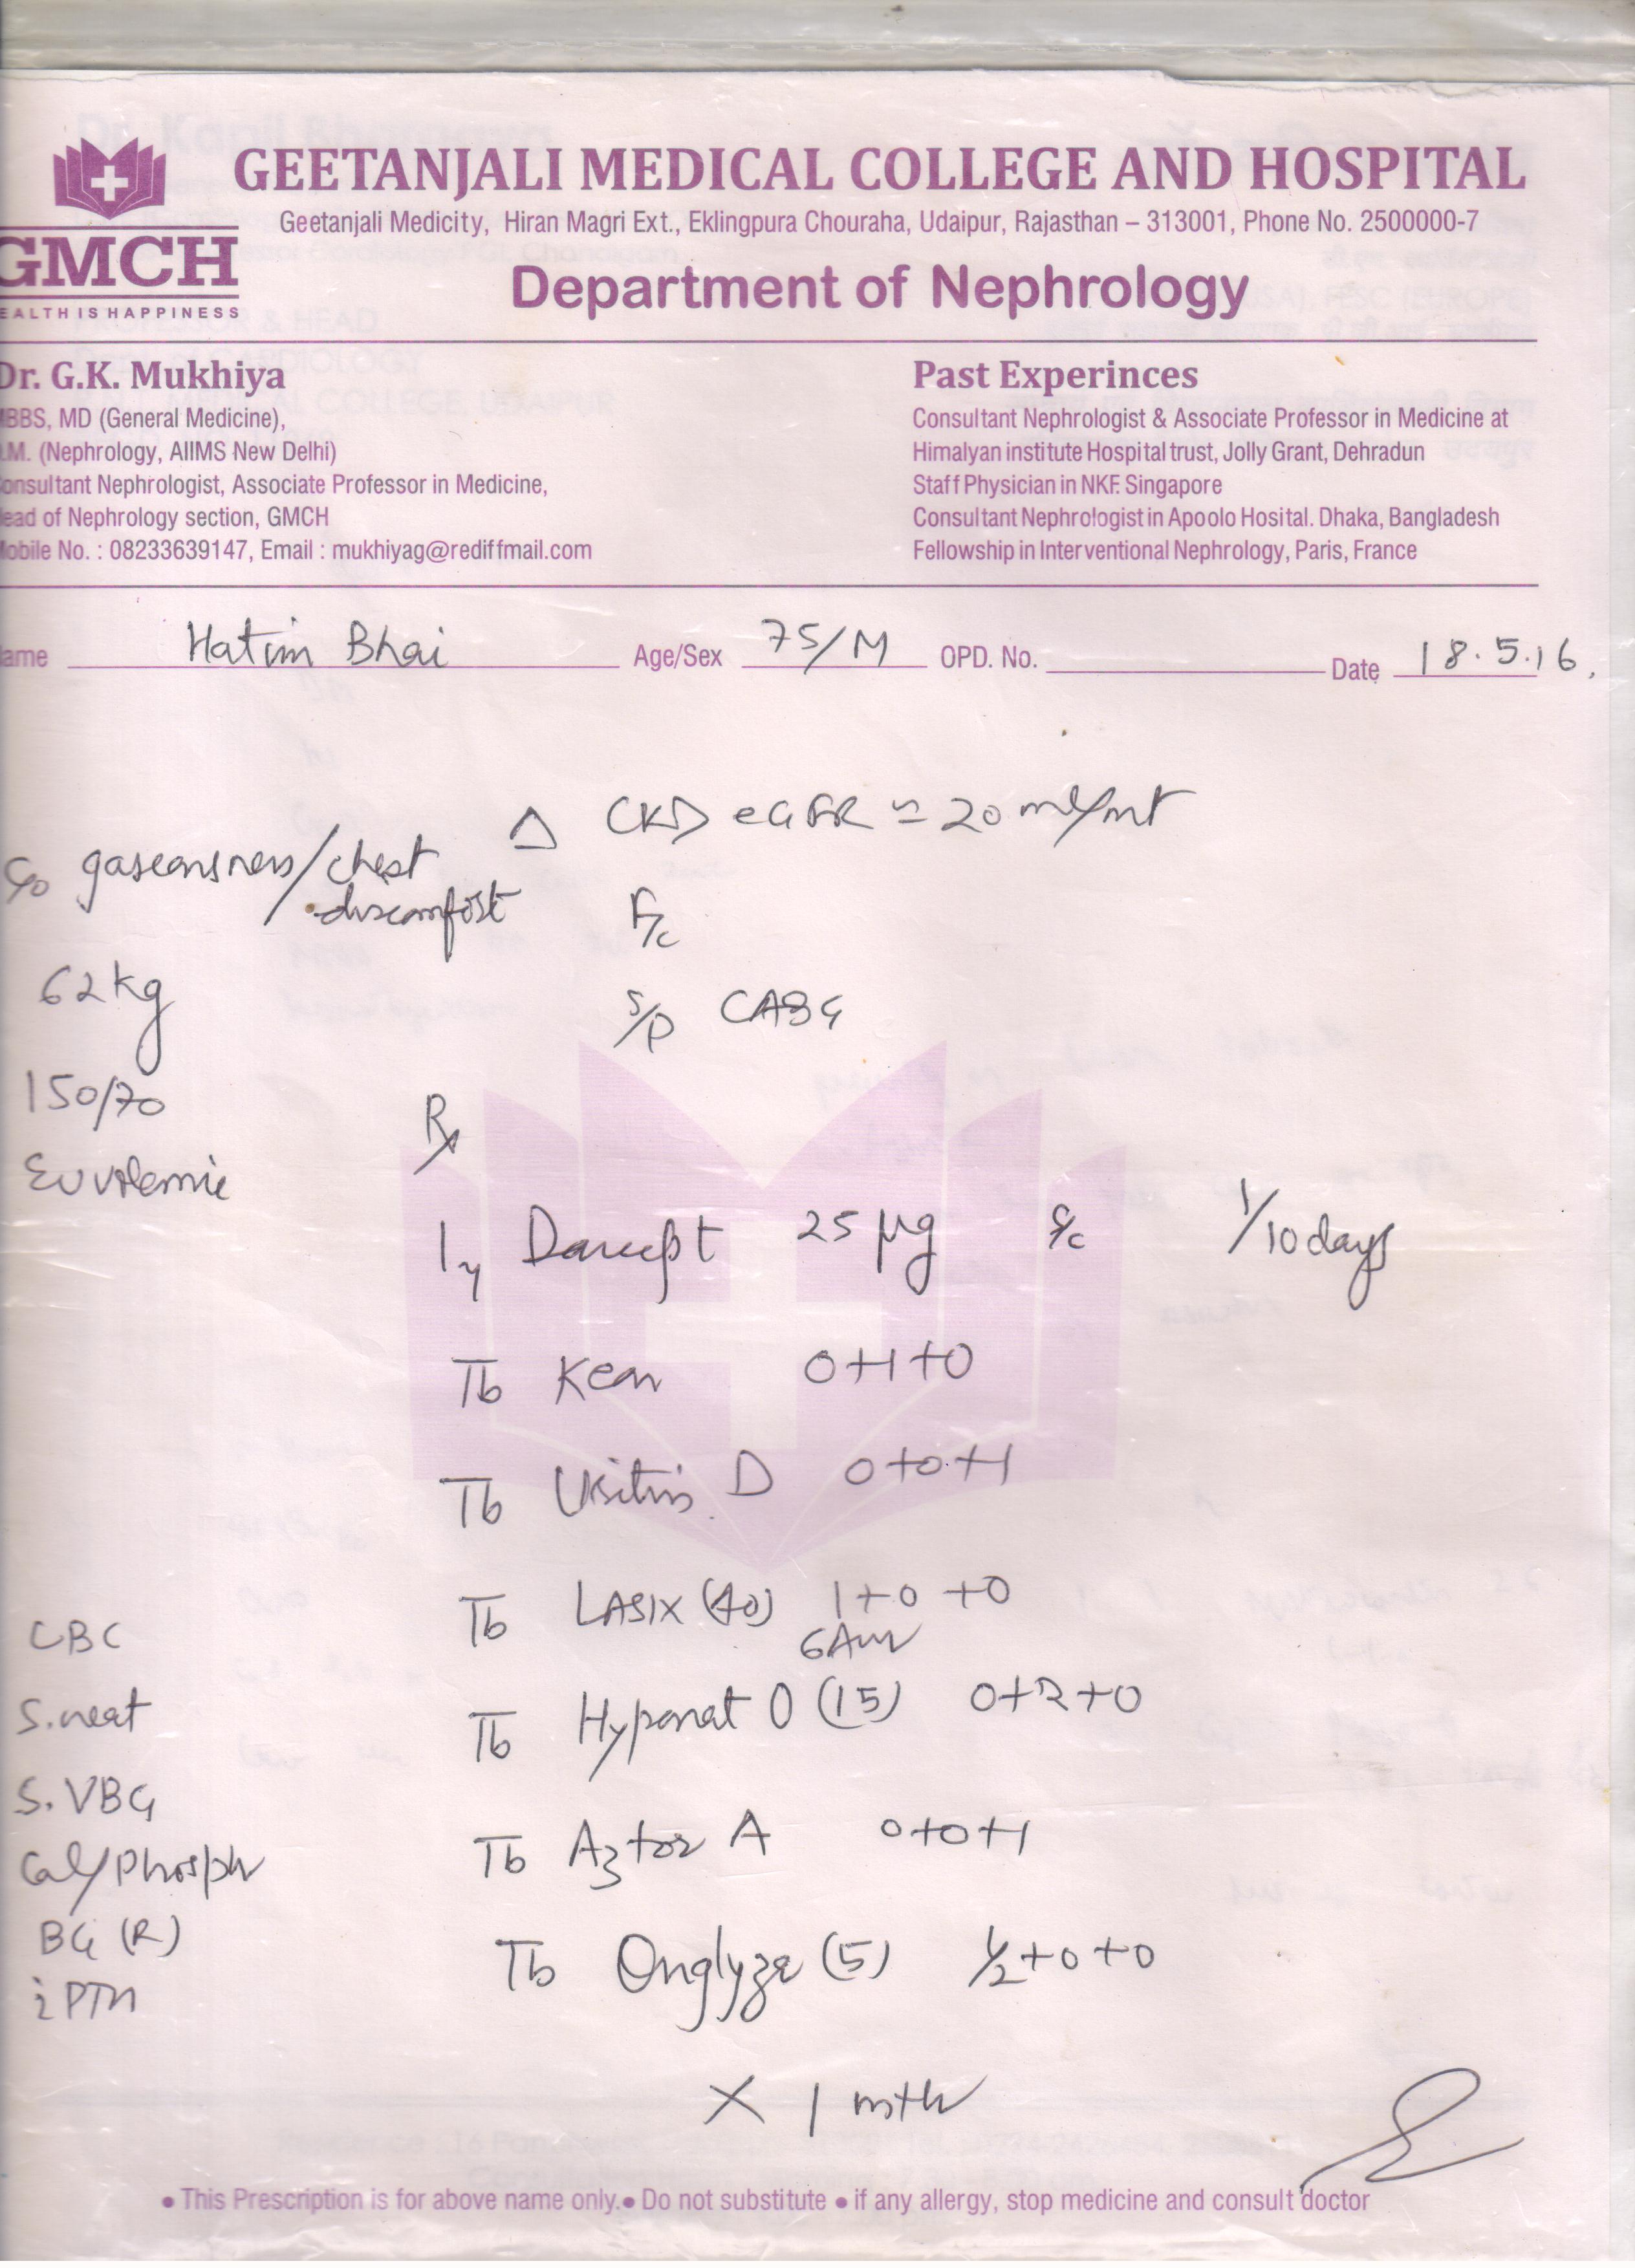 GEETANJALI MEDICAL COLLEGE AND HOSPITAL
Geetanjali Medicity, Hiran Magri Ext., Eklingpura Chouraha, Udaipur, Rajasthan – 313001, Phone No. 2500000-7
GMCH
EALTH IS HAPPINESS
Department of Nephrology
Dr. G.K. Mukhiya
BBS, MD (General Medicine),
.M. (Nephrology, AIIMS New Delhi)
onsultant Nephrologist, Associate Professor in Medicine,
ead of Nephrology section, GMCH
obile No. : 08233639147, Email : mukhiyag@rediffmail.com
Past Experinces
Consultant Nephrologist & Associate Professor in Medicine at
Himalyan institute Hospital trust, Jolly Grant, Dehradun
Staff Physician in NKF. Singapore
Consultant Nephrologist in Apoolo Hosital. Dhaka, Bangladesh
Fellowship in Interventional Nephrology, Paris, France
ame Hatim Bhai Age/Sex 75/M OPD. No. Date 18.5.16
Δ CKD eGFR ≃ 20 ml/mt
c/o gaseousness/chest
discomfort
62kg
S/P CABG
150/70
Rx
Euvolemic
Darcept 25 μg s/c 1/10 days
Tb 0+1+0
Tb D 0+0+1
Tb LASIX (40) 1+0+0
6Am
CBC
Tb Hyponat O (15) 0+2+0
S.
S. VBG
Tb Aztor A 0+0+1
Cal/Phosph
BG (R)
Tb Onglyza (5) 1/2+0+0
iPTH
X 1 mth
• This Prescription is for above name only. • Do not substitute • if any allergy, stop medicine and consult doctor